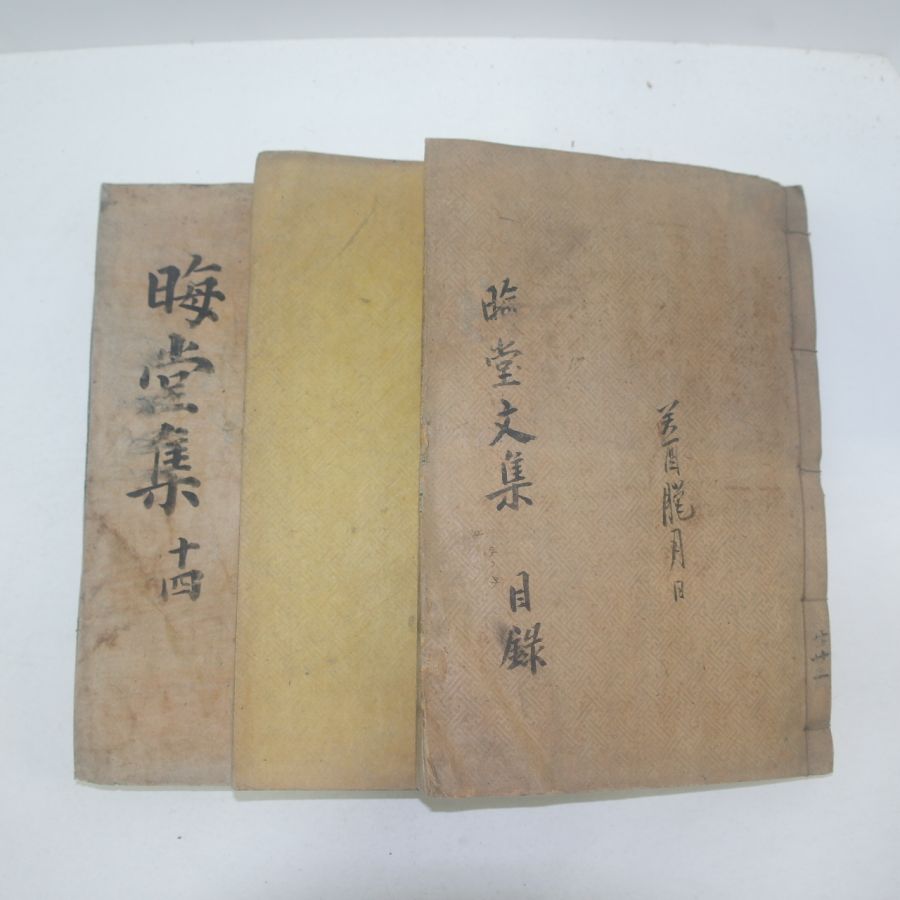 晦堂集
十四
晦堂文集
目錄
癸酉臘月日